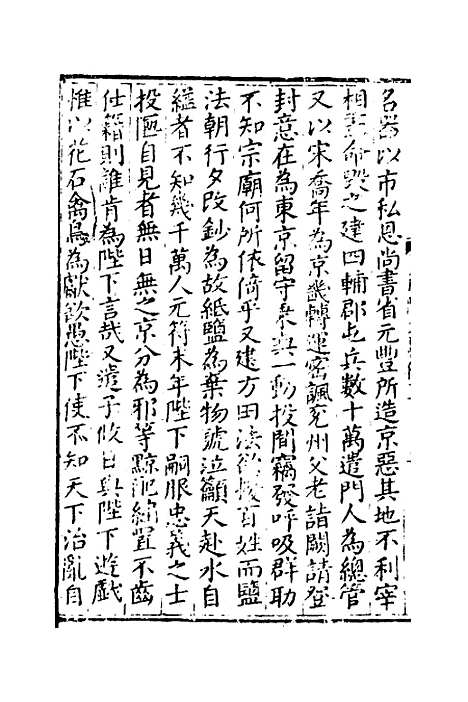 名器以市私恩尚書省元豐所造京惡其地不利宰
相妻命毀之建四輔郡屯兵數十萬遣門人為總管
又以宋喬年為京畿轉運密諷兗州父老詣闕請登
封意在為東京留守乘輿一動投間竊發呼吸群助
不知宗廟何所依倚乎又建方田法欲擾百姓而鹽
法朝行夕改鈔為故紙鹽為棄物號泣籲天赴水自
縊者不知幾千萬人元符末年陛下嗣服忠義之士
投匭自見者無日無之京分為邪等黥配編置不齒
仕籍則誰肯為陛下言哉又遣子攸日與陛下遊戲
惟以花石禽鳥為獻欲愚陛下使不知天下治亂自